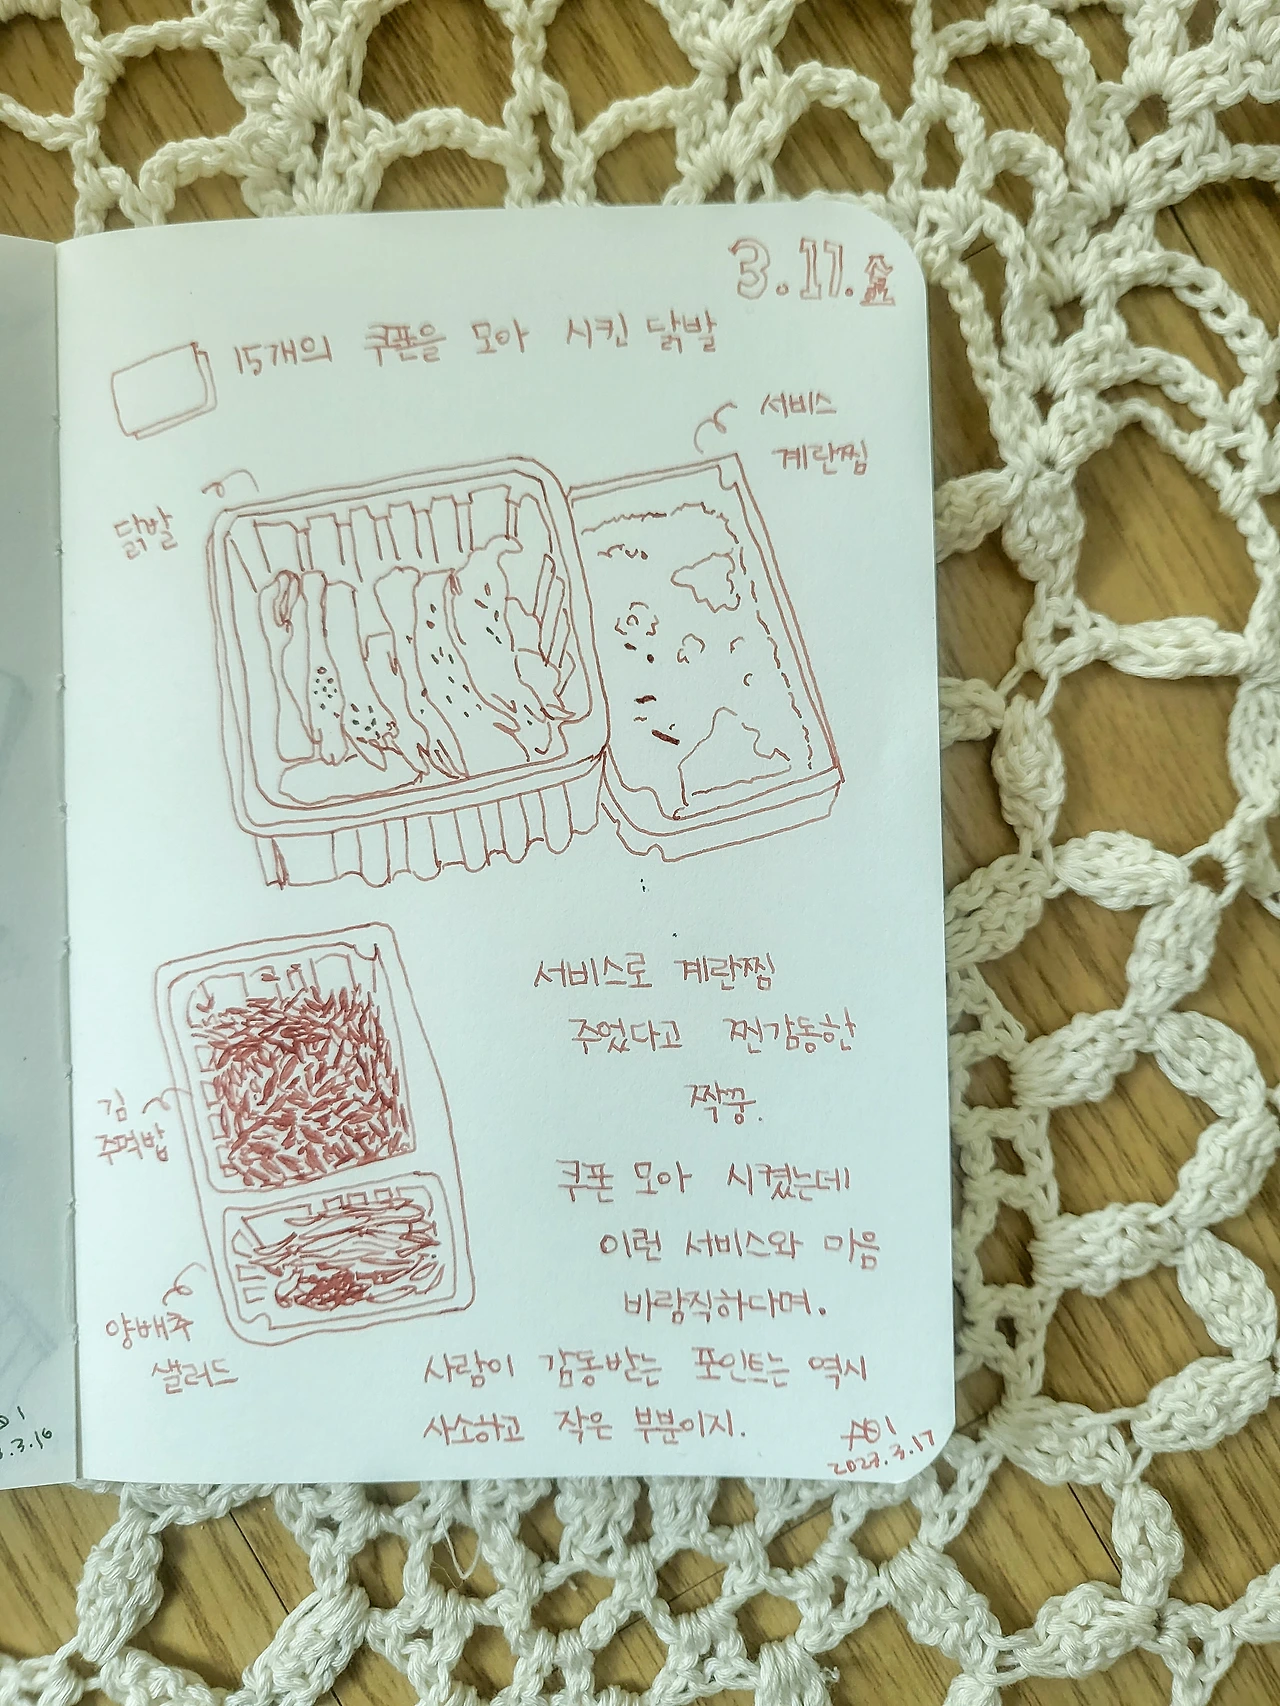 3.17.金
15개의 쿠폰을 모아 시킨 닭발
서비스
계란찜
닭발
서비스로 계란찜
주었다고 찐감동한
짝꿍.
김
주먹밥
쿠폰 모아 시켰는데
이런 서비스와 마음
바람직하다며.
양배추
샐러드
사람이 감동받는 포인트는 역시
사소하고 작은 부분이지.
2023.3.17
.3.16